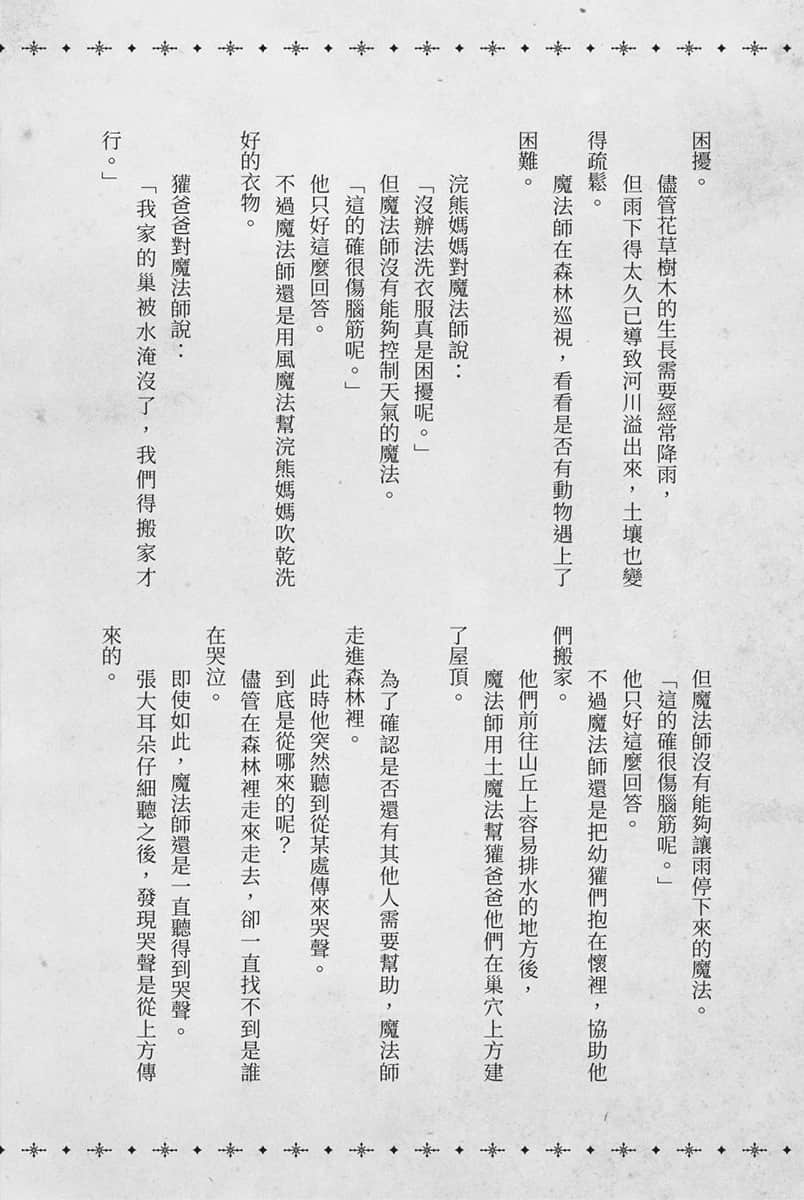 困擾。
儘管花草樹木的生長需要經常降雨，
但雨下得太久已導致河川溢出來，土壤也變
得疏鬆。
魔法師在森林巡視，看看是否有動物遇上了
困難。
浣熊媽媽對魔法師說：
「沒辦法洗衣服真是困擾呢。」
但魔法師沒有能夠控制天氣的魔法。
「這的確很傷腦筋呢。」
他只好這麼回答。
不過魔法師還是用風魔法幫浣熊媽媽吹乾洗
好的衣物。
獾爸爸對魔法師說：
「我家的巢被水淹沒了，我們得搬家才
行。」
但魔法師沒有能夠讓雨停下來的魔法。
「這的確很傷腦筋呢。」
他只好這麼回答。
不過魔法師還是把幼獾們抱在懷裡，協助他
們搬家。
他們前往山丘上容易排水的地方後，
魔法師用土魔法幫獾爸爸他們在巢穴上方建
了屋頂。
為了確認是否還有其他人需要幫助，魔法師
走進森林裡。
此時他突然聽到從某處傳來哭聲。
到底是從哪來的呢？
儘管在森林裡走來走去，卻一直找不到是誰
在哭泣。
即使如此，魔法師還是一直聽得到哭聲。
張大耳朵仔細聽之後，發現哭聲是從上方傳
來的。